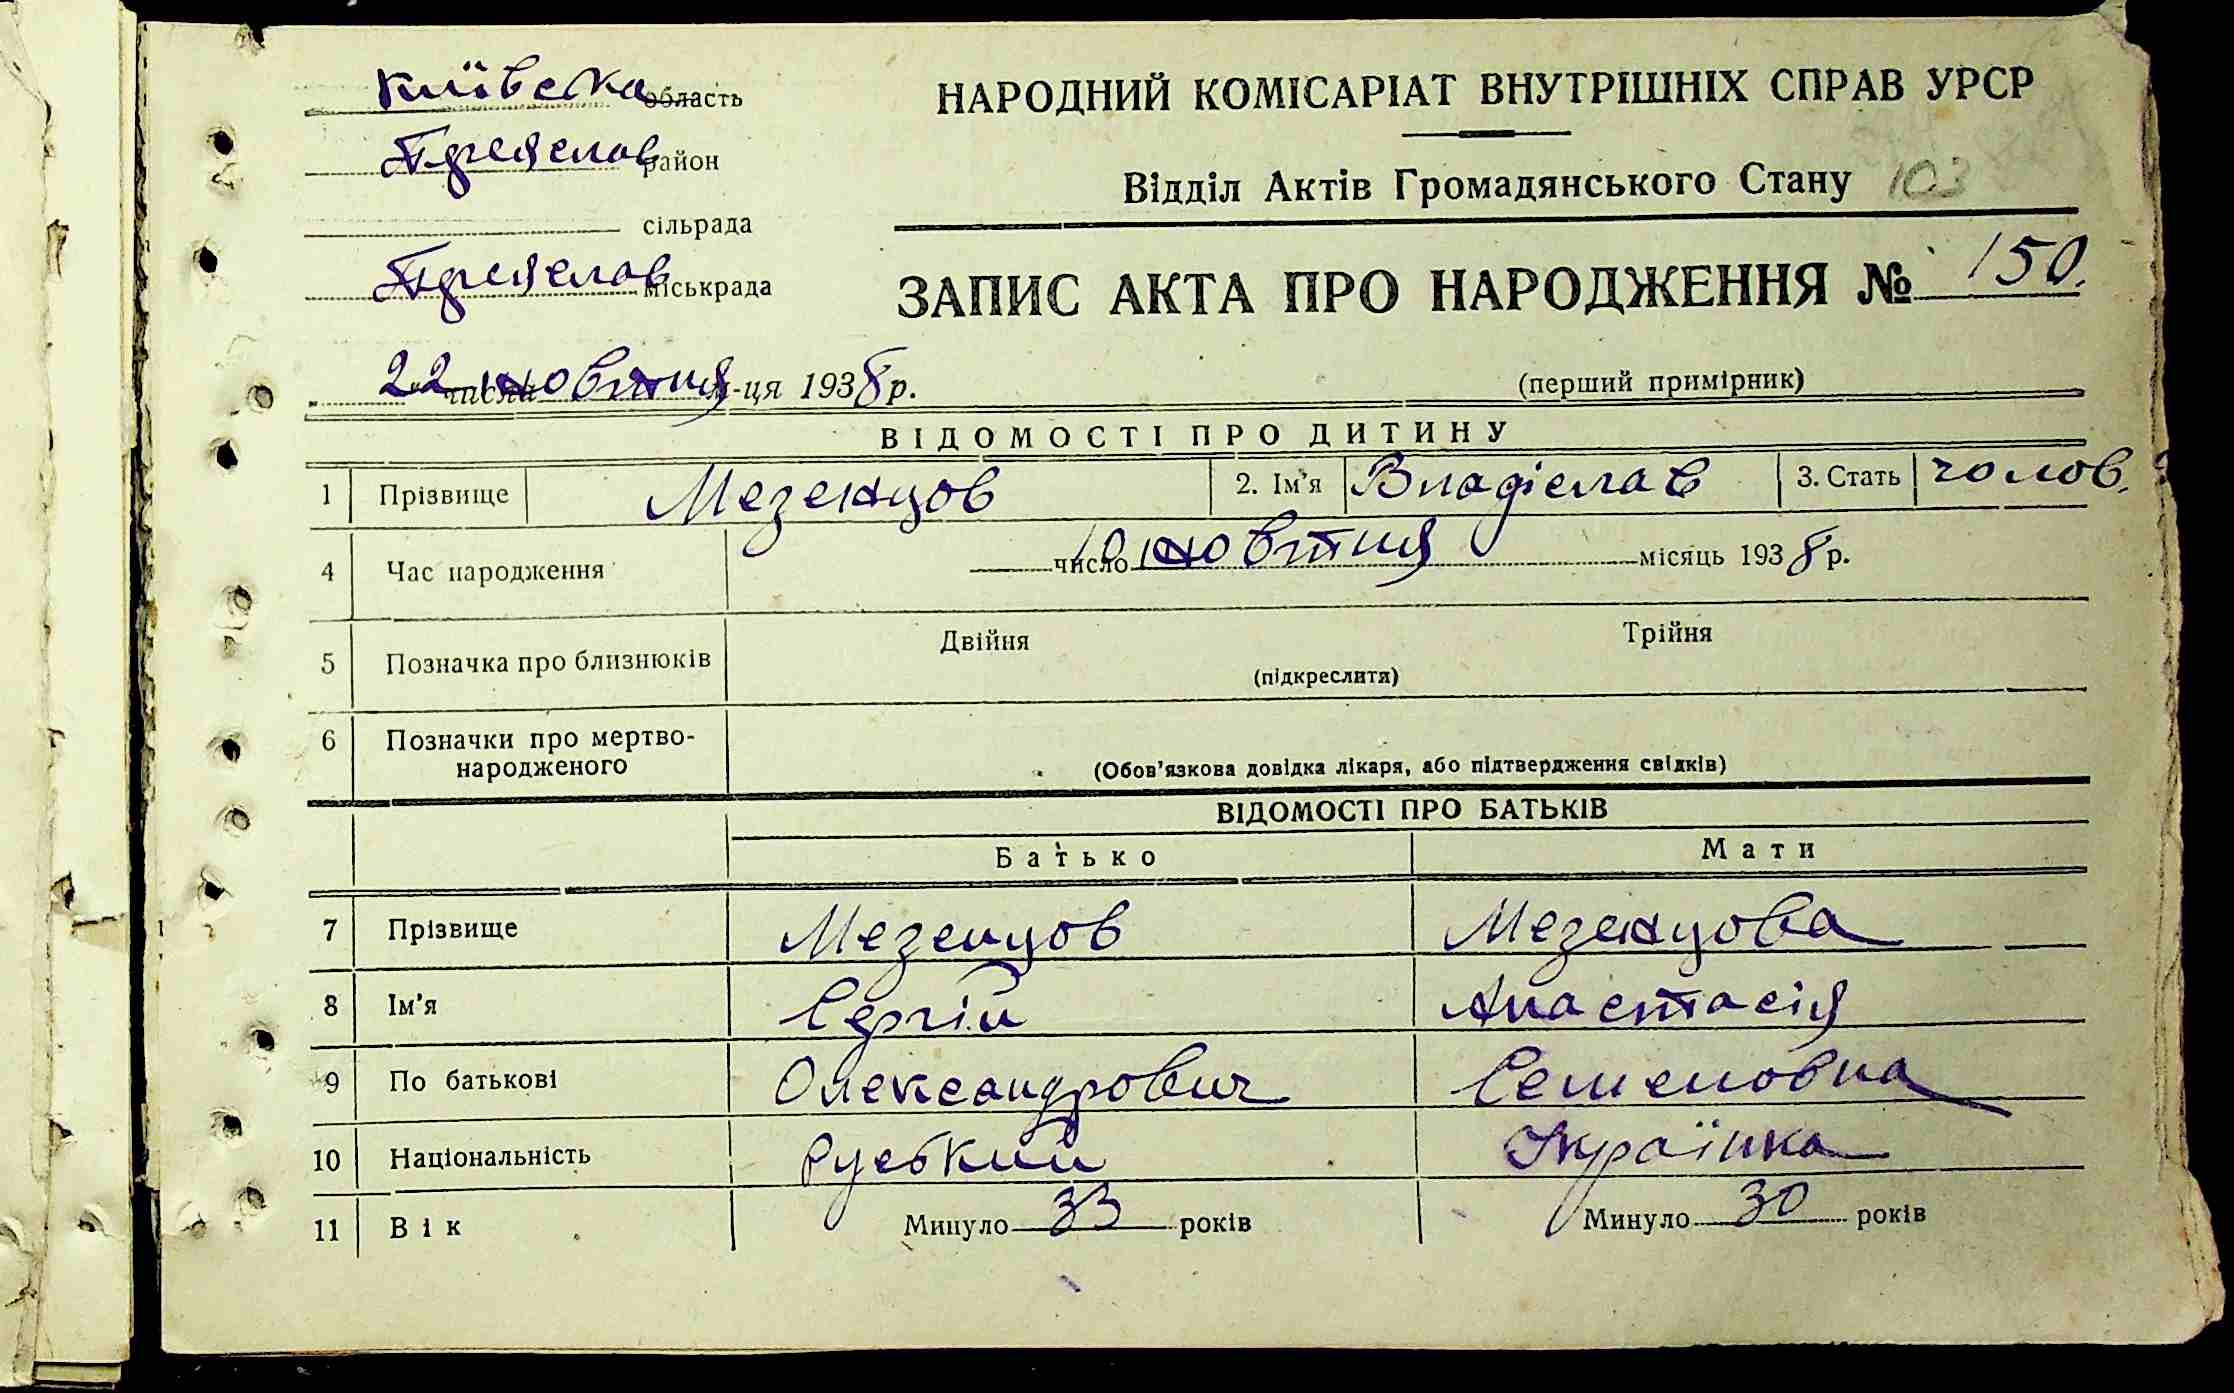 Київська область
Переяслав район
сільрада
Переяслав міськрада
НАРОДНИЙ КОМІСАРІАТ ВНУТРІШНІХ СПРАВ УРСР
Відділ Актів Громадянського Стану 103
ЗАПИС АКТА ПРО НАРОДЖЕННЯ № 150.
22 числа жовтня м-ця 1938 р.
(перший примірник)
ВІДОМОСТІ ПРО ДИТИНУ
1 Прізвище Мезенцов 2. Ім'я Владіслав 3. Стать чолов.
4 Час народження 10 число жовтня місяць 1938 р.
5 Позначка про близнюків Двійня Трійня
(підкреслити)
6 Позначки про мертво-
народженого
(Обов'язкова довідка лікаря, або підтвердження свідків)
ВІДОМОСТІ ПРО БАТЬКІВ
Батько Мати
7 Прізвище Мезенцов Мезенцова
8 Ім'я Сергій Анастасія
9 По батькові Олександрович Семеновна
10 Національність Руський Українка
11 Вік Минуло 33 років Минуло 30 років